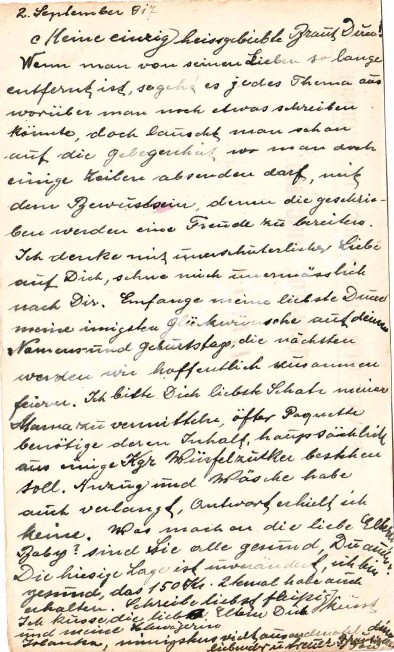 2. September 917
Meine einzig heissgeliebte Braut Duci!
Wenn man von seinen Lieben so lange
entfernt ist, so geht es jedes Thema aus
worüber man noch etwas schreiben
könnte, doch lauscht man schon
auf die Gelegenheit wo man doch
einige Zeilen absenden darf, mit
dem Bewustsein, denen die geschrie-
ben werden eine Freude zu bereiten.
Ich denke mit unerschüterlicher Liebe
auf Dich, sehne mich unermässlich
nach Dir. Empfange meine liebste Duci
meine innigsten Glückwünsche auf deine
Namens und Geburtstag, die nächsten
werden wir hoffentlich zusammen
feiern. Ich bitte Dich liebste Schatz meiner
Mama zu vermitteln, öfter Paquette
benötige deren Inhalt, haupsächlich
aus einige Kgr Würfelzucker bestehen
soll. Anzug und Wäsche habe
auch verlangt, Antwort erhielt ich
keine. Was machen die liebe Eltern
Baby? sind Sie alle gesund, Du auch?
Die hiesige Lage ist unverändert, ich bin
gesund, das 150 Kr. 2 temal habe auch
erhalten. Schreibe liebst fleißig
Ich küsse die liebe Eltern Dich
und meine Schwägerin
Jolanka, innigst
liebender u treuer